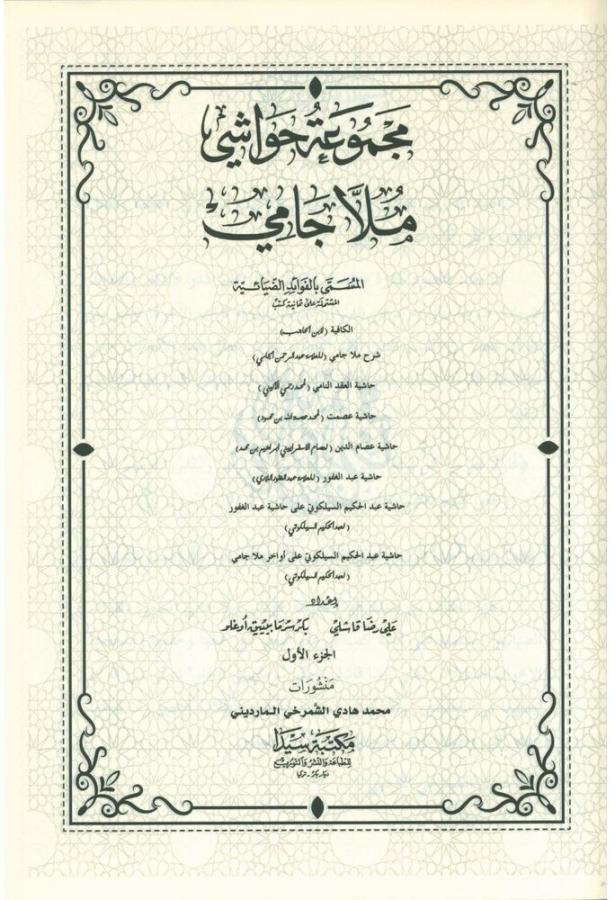 مَجْمُوعَةُ حَوَاشِي
مُلَّا جَامِي
المُسَمَّى بالفَوَائِدِ الضِّيَائِيَّة
المشتملة على ثمانية كتب
الكافية (لابن الحاجب)
شرح ملا جامي (للعلامة عبد الرحمن الجامي)
حاشية العقد النامي (لمحمد رحمي الأكيني)
حاشية عصمت (لمحمد عصمة الله بن محمود)
حاشية عصام الدين (لعصام الإسفراييني إبراهيم بن محمد)
حاشية عبد الغفور (للعلامة عبد الغفور اللاري)
حاشية عبد الحكيم السيلكوتي على حاشية عبد الغفور
(لعبد الحكيم السيلكوتي)
حاشية عبد الحكيم السيلكوتي على أواخر ملا جامي
(لعبد الحكيم السيلكوتي)
إعداد
علي رضا قاشلي بكر سرما
الجزء الأول
مَنشورات
محمد هادي الشّمرخي المارديني
مكتبة سيدا
للطباعة والنشر والتوزيع
ديار بكر - تركيا